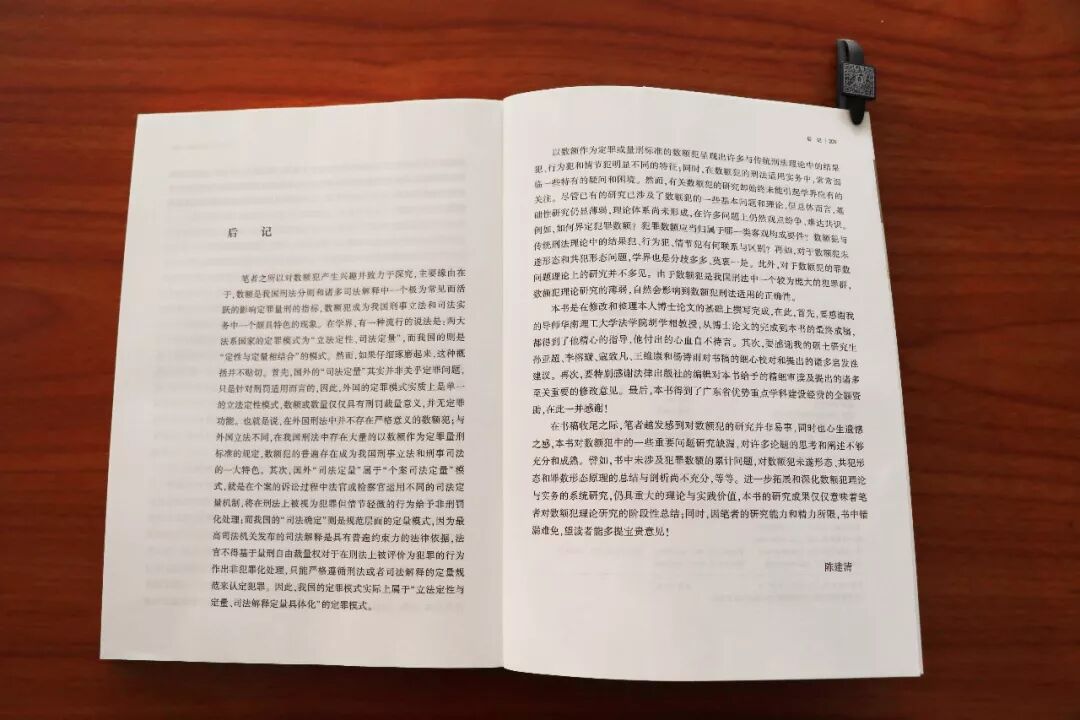 后 记
笔者之所以对数额犯产生兴趣并致力于深究,主要缘由在
于,数额是我国刑法分则和诸多司法解释中一个极为常见而活
跃的影响定罪量刑的指标,数额犯成为我国刑事立法和司法实
务中一个颇具特色的现象。在学界,有一种流行的说法是:两大
法系国家的定罪模式为“立法定性、司法定量”,而我国的则是
“定性与定量相结合”的模式。然而,如果仔细琢磨起来,这种概
括并不贴切。首先,国外的“司法定量”其实并非关乎定罪问题,
只是针对刑罚适用而言的,因此,外国的定罪模式实质上是单一
的立法定性模式,数额或数量仅仅具有刑罚裁量意义,并无定罪
功能。也就是说,在外国刑法中并不存在严格意义的数额犯;与
外国立法不同,在我国刑法中存在大量的以数额作为定罪量刑
标准的规定,数额犯的普遍存在成为我国刑事立法和刑事司法
的一大特色。其次,国外“司法定量”属于“个案司法定量”模
式,就是在个案的诉讼过程中法官或检察官运用不同的司法定
量机制,将在刑法上被视为犯罪但情节轻微的行为给予非刑罚
化处理;而我国的“司法确定”则是规范层面的定量模式,因为最
高司法机关发布的司法解释是具有普遍约束力的法律依据,法
官不得基于量刑自由裁量权对于在刑法上被评价为犯罪的行为
作出非犯罪化处理,只能严格遵循刑法或者司法解释的定量规
范来认定犯罪。因此,我国的定罪模式实际上属于“立法定性与
定量、司法解释定量具体化”的定罪模式。
后 记
以数额作为定罪或量刑标准的数额犯呈现出许多与传统刑法理论中的结果
犯、行为犯和情节犯明显不同的特征;同时,在数额犯的刑法适用实务中,常常面
临一些特有的疑问和困境。然而,有关数额犯的研究却始终未能引起学界应有的
关注。尽管已有的研究已涉及了数额犯的一些基本问题和理论,但总体而言,基
础性研究仍显薄弱,理论体系尚未形成,在许多问题上仍然观点纷争、难达共识。
例如,如何界定犯罪数额?犯罪数额应当归属于哪一类客观构成要件?数额犯与
传统刑法理论中的结果犯、行为犯、情节犯有何联系与区别?再如,对于数额犯未
遂形态和共犯形态问题,学界也是分歧多多,莫衷一是。此外,对于数额犯的罪数
问题理论上的研究并不多见。由于数额犯是我国刑法中一个较为庞大的犯罪群,
数额犯理论研究的薄弱,自然会影响到数额犯刑法适用的正确性。
本书是在修改和梳理本人博士论文的基础上撰写完成,在此,首先,要感谢我
的导师华南理工大学法学院胡学相教授,从博士论文的完成到本书的最终成稿,
都得到了他精心的指导,他付出的心血自不待言。其次,要感谢我的硕士研究生
孙亚超、李榕媛、寇致凡、王维康和杨诗雨对书稿的细心校对和提出的诸多启发性
建议。再次,要特别感谢法律出版社的编辑对本书给予的精细审读及提出的诸多
至关重要的修改意见。最后,本书得到了广东省优势重点学科建设经费的全额资
助,在此一并感谢!
在书稿收尾之际,笔者越发感到对数额犯的研究并非易事,同时也心生遗憾
之感,本书对数额犯中的一些重要问题研究缺漏,对许多论题的思考和阐述不够
充分和成熟。譬如,书中未涉及犯罪数额的累计问题,对数额犯未遂形态、共犯形
态和罪数形态原理的总结与剖析尚不充分,等等。进一步拓展和深化数额犯理论
与实务的系统研究,仍具重大的理论与实践价值,本书的研究成果仅仅意味着笔
者对数额犯理论研究的阶段性总结;同时,因笔者的研究能力和精力所限,书中错
漏难免,望读者能多提宝贵意见!
陈建清